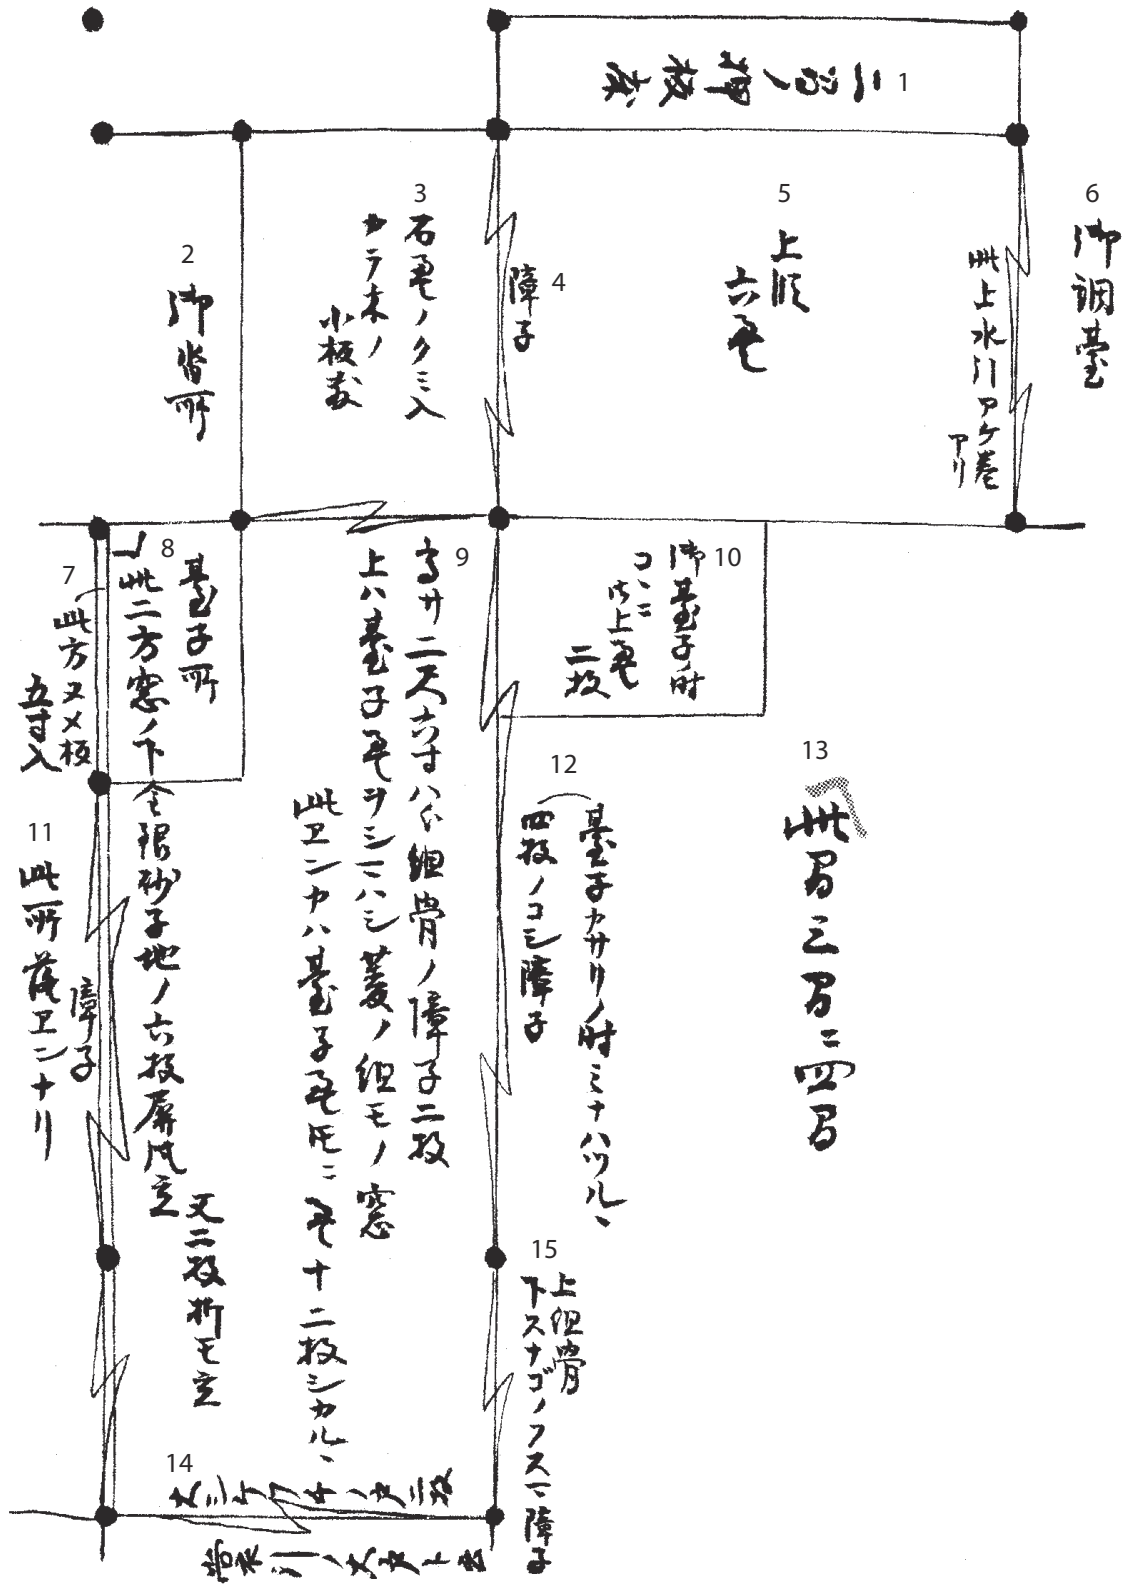 1
2
御皆所
3
石畳ノクミ入
カラ木ノ
小板敷
4
障子
5
上段
六畳
6
御調臺
此上水引アケ巻
アリ
7
此方ヌメ板
五寸入
8
臺子所
此二方窓ノ下金銀砂子地ノ六枚屏風立
又二枚折モ立
9
高サ二尺六寸ハカリ組骨ノ障子二枚
上ハ臺子畳ヲシマハシ菱ノ組モノ窓
此エンカハ臺子畳トモニ畳十二枚シカル丶
10
御臺子ノ時
コ丶ニ
上畳
二枚
11
此所落エンナリ
障子
12
臺子カサリノ時ミナハツル丶
四枚ノコシ障子
13
此間三間ニ四間
14
15
上組骨
下スナゴノフスマ障子